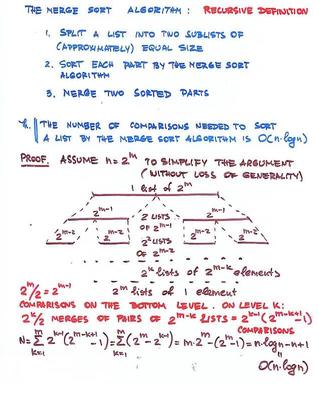 THE MERGE SORT ALGORITHM: RECURSIVE DEFINITION
1. SPLIT A LIST INTO TWO SUBLISTS OF
(APPROXIMATELY) EQUAL SIZE
2. SORT EACH PART BY THE MERGE SORT
ALGORITHM
3. MERGE TWO SORTED PARTS
Th. THE NUMBER OF COMPARISONS NEEDED TO SORT
A LIST BY THE MERGE SORT ALGORITHM IS O(n·logn)
PROOF. ASSUME n=2^m TO SIMPLIFY THE ARGUMENT
(WITHOUT LOSS OF GENERALITY)
1 list of 2^m
2^{m-1} 2 LISTS OF 2^{m-1} 2^{m-1}
2^{m-2} 2^{m-2} 2² LISTS OF 2^{m-2} 2^{m-2} 2^{m-2}
2^k lists of 2^{m-k} elements
2^m/2 = 2^{m-1} 2^m lists of 1 element
COMPARISONS ON THE BOTTOM LEVEL. ON LEVEL K:
2^k/2 MERGES OF PAIRS OF 2^{m-k} LISTS = 2^{k-1}(2^{m-k+1}-1)
COMPARISONS
N = Σ_{k=1}^{m} 2^{k-1}(2^{m-k+1}-1) = Σ_{k=1}^{m} (2^m - 2^{k-1}) = m·2^m - (2^m - 1) = n·logn - n + 1
=
O(n·logn)